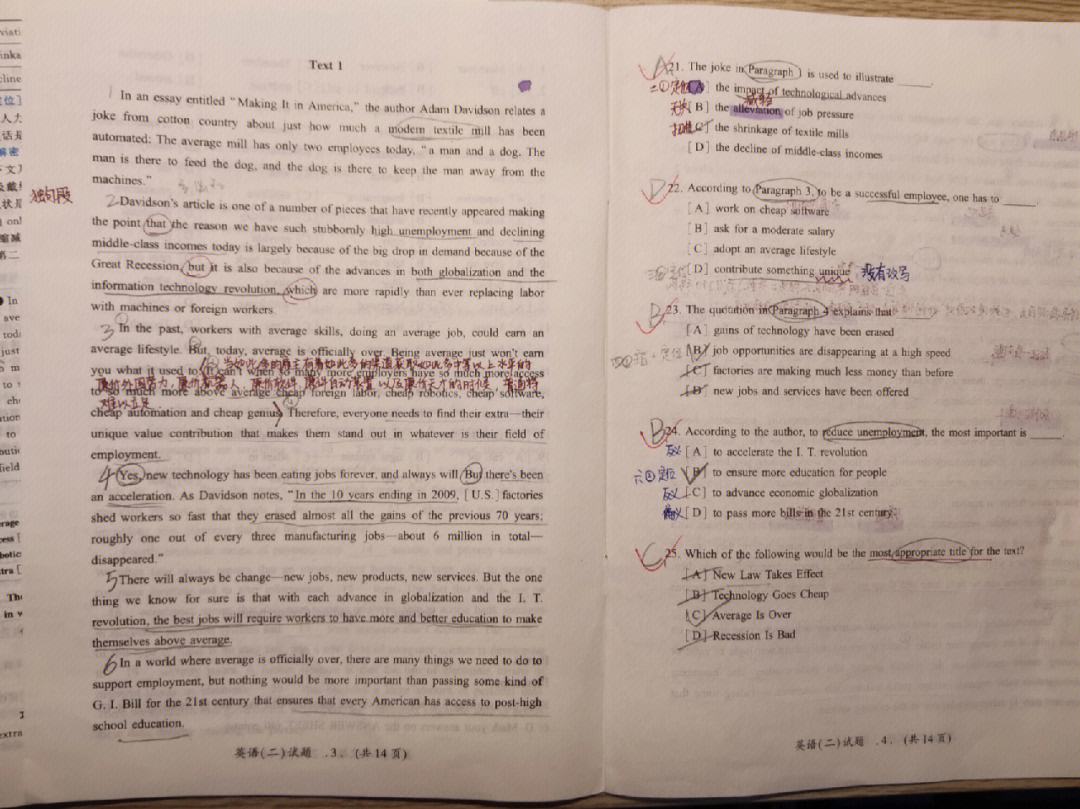 Text 1
1 In an essay entitled “Making It in America,” the author Adam Davidson relates a
joke from cotton country about just how much a modern textile mill has been
automated: The average mill has only two employees today, “a man and a dog. The
man is there to feed the dog, and the dog is there to keep the man away from the
machines.”
独句段
2 Davidson's article is one of a number of pieces that have recently appeared making
the point that the reason we have such stubbornly high unemployment and declining
middle-class incomes today is largely because of the big drop in demand because of the
Great Recession, but it is also because of the advances in both globalization and the
information technology revolution, which are more rapidly than ever replacing labor
with machines or foreign workers.
3 In the past, workers with average skills, doing an average job, could earn an
average lifestyle. But, today, average is officially over. Being average just won't earn
you what it used to. It can't when so many more employers have so much more access
to so much more above average cheap foreign labor, cheap robotics, cheap software,
cheap automation and cheap genius. Therefore, everyone needs to find their extra—their
unique value contribution that makes them stand out in whatever is their field of
employment.
4 Yes, new technology has been eating jobs forever, and always will. But there's been
an acceleration. As Davidson notes, “In the 10 years ending in 2009, [U.S.] factories
shed workers so fast that they erased almost all the gains of the previous 70 years;
roughly one out of every three manufacturing jobs—about 6 million in total—
disappeared.”
5 There will always be change—new jobs, new products, new services. But the one
thing we know for sure is that with each advance in globalization and the I. T.
revolution, the best jobs will require workers to have more and better education to make
themselves above average.
6 In a world where average is officially over, there are many things we need to do to
support employment, but nothing would be more important than passing some kind of
G. I. Bill for the 21st century that ensures that every American has access to post-high
school education.
英语(二)试题 .3. (共14页)
A 21. The joke in Paragraph 1 is used to illustrate ______.
[A] the impact of technological advances
减轻
无关 [B] the alleviation of job pressure
[C] the shrinkage of textile mills
[D] the decline of middle-class incomes
D 22. According to Paragraph 3, to be a successful employee, one has to ______.
[A] work on cheap software
[B] ask for a moderate salary
[C] adopt an average lifestyle
[D] contribute something unique 没有改写
B 23. The quotation in Paragraph 4 explains that ______.
[A] gains of technology have been erased
[B] job opportunities are disappearing at a high speed
[C] factories are making much less money than before
[D] new jobs and services have been offered
B 24. According to the author, to reduce unemployment, the most important is ______.
反义 [A] to accelerate the I. T. revolution
[B] to ensure more education for people
反义 [C] to advance economic globalization
[D] to pass more bills in the 21st century
C 25. Which of the following would be the most appropriate title for the text?
[A] New Law Takes Effect
[B] Technology Goes Cheap
[C] Average Is Over
[D] Recession Is Bad
英语(二)试题 .4. (共14页)